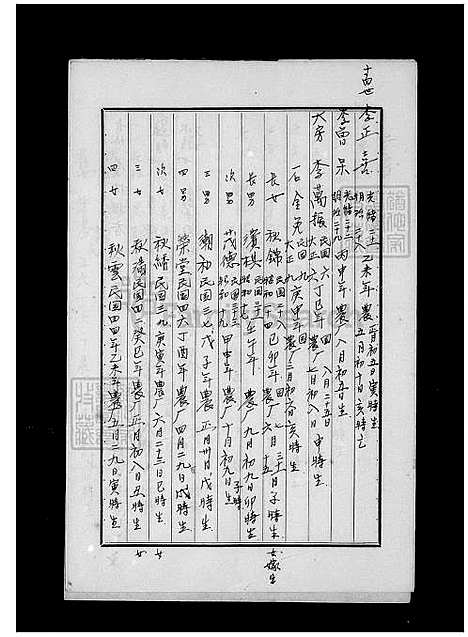 十四世 李正喜 光緒二十一 明治二十八 乙未年 農 初五日寅時生 五月初十日亥時亡
李曾呆 光緒二十二 明治二十九 丙申年 農 八月初五日生
大房 李萬 民國六 大正六 丁巳年 國八月二十五日 農七月初八日申時生
石金 民國九 大正九 庚申年 農 二月初八日亥時生
長女 秋錦 民國二八 昭和十四 己卯年 農 六月十五日子時生 女嫁生
長男 民國三一 昭和十七 壬午年 農 九月初九日卯時生
次男 茂德 民國三三 昭和十九 甲申年 農 十月初九日子時生
三男 民國三七 戊子年 農 正月卅日戌時生
四男 榮堂 民國四六 丁酉年 農 四月二九日戌時生
次女 秋 民國三九 庚寅年 農 六月二十三日巳時生 女
三女 秋 民國四二 癸巳年 農 正月初八日丑時生 女
四女 秋雲 民國四四年乙未年 農 五月二九日寅時生